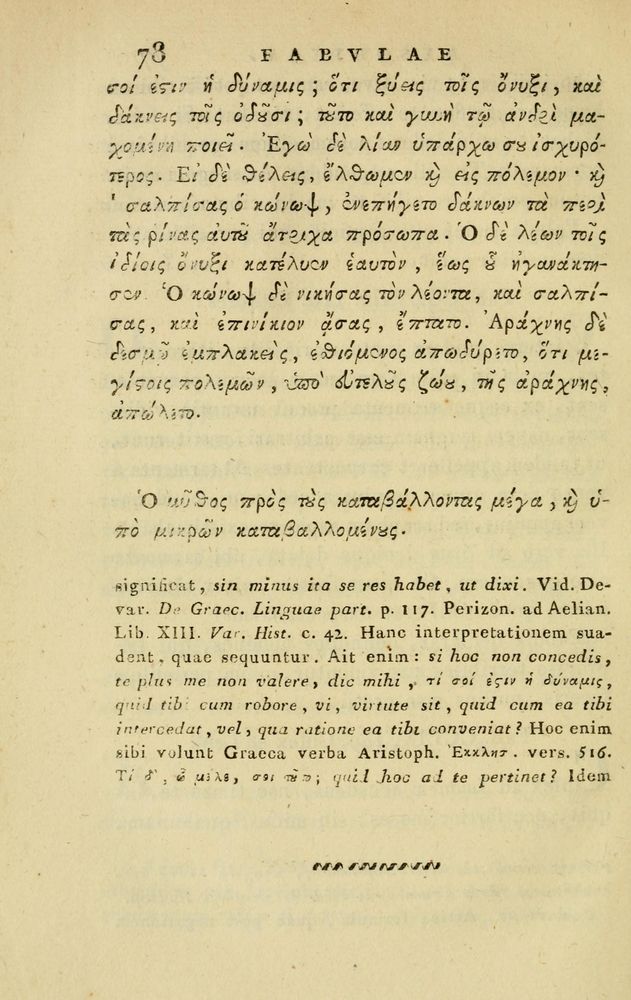 78 FABVLAE
σοί ἐϛιν ἡ δύναμις; ὅτι ξύεις τοῖς ὄνυξι, καὶ
δάκνεις τοῖς ὀδȣ͂σι; τȣ͂το καὶ γυνὴ τῷ ἀνδρὶ μα-
χομένη ποιεῖ. Ἐγὼ δὲ λίαν ὑπάρχω σου ἰσχυρό-
τερος. Εἰ δὲ θέλεις, ἔλθωμεν ϗ εἰς πόλεμον· ϗ
σαλπίσας ὁ κώνωψ, ἐνεπήγετο δάκνων τὰ περὶ
τὰς ρίνας αὐτȣ͂ ἄτριχα πρόσωπα. Ὁ δὲ λέων τοῖς
ἰδίοις ὄνυξι κατέλυεν ἑαυτὸν, ἕως ȣ͗ ἠγανάκτη-
σεν. Ὁ κώνωψ δὲ νικήσας τὸν λέοντα, καὶ σαλπί-
σας, καὶ ἐπινίκιον ᾄσας, ἔπτατο. Ἀράχνης δὲ
δεσμῷ ἐμπλακεὶς, ἐθιόμενος ἀπωδύρετο, ὅτι με-
γίϛοις πολεμῶν, ὑπὸ εὐτελȣ͂ς ζώȣ, τῆς ἀράχνης,
ἀπώλετο.
Ὁ μῦθος πρὸς τȣ̀ς καταβάλλοντας μέγα, ϗ ὑ-
πὸ μικρῶν καταβαλλομένȣς.
significat, sin minus ita se res habet, ut dixi. Vid. De-
var. De Graec. Linguae part. p. 117. Perizon. ad Aelian.
Lib. XIII. Var. Hist. c. 42. Hanc interpretationem sua-
dent, quae sequuntur. Ait enim: si hoc non concedis,
te plus me non valere, dic mihi, τί σοί ἐϛιν ἡ δύναμις,
quid tibi cum robore, vi, virtute sit, quid cum ea tibi
intercedat, vel, qua ratione ea tibi conveniat? Hoc enim
sibi volunt Graeca verba Aristoph. Ἐκκλησ. vers. 516.
Τί δ', ὦ μέλε, σοι τȣ͂το; quid hoc ad te pertinet? Idem